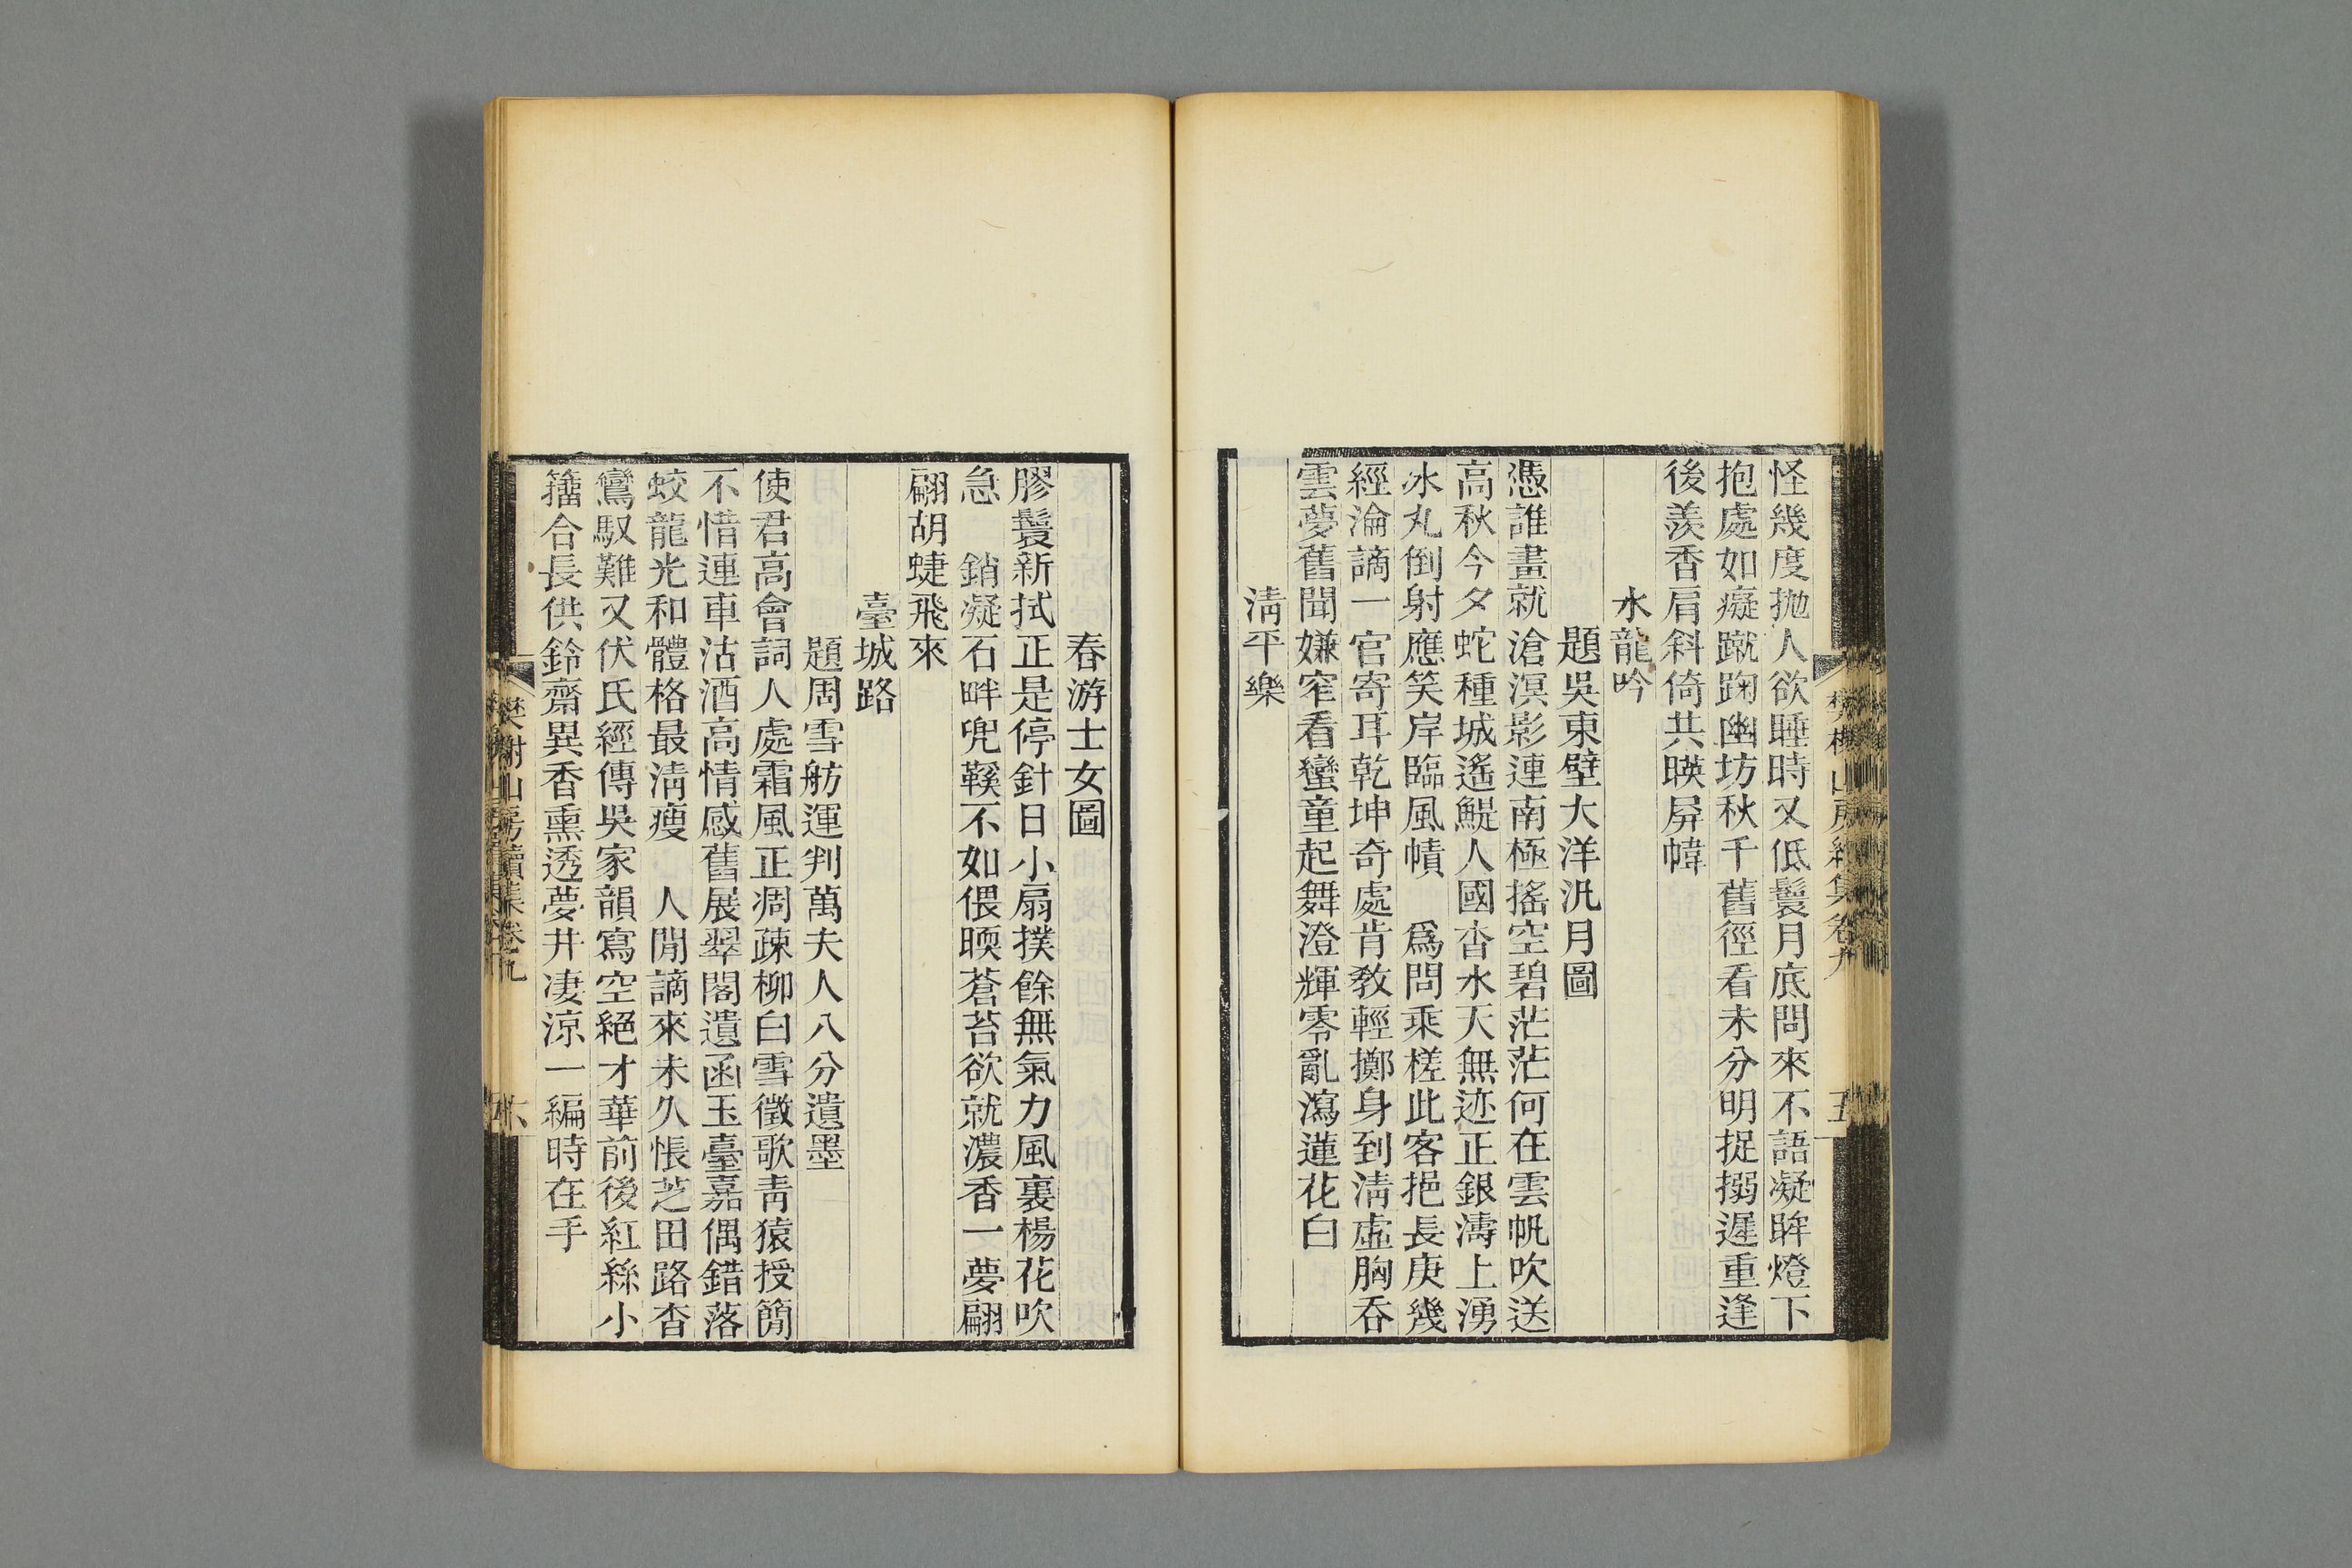 怪幾度抛人欲睡時又低鬟月底問來不語凝眸燈下
抱處如癡蹴踘幽坊秋千舊徑看未分明捉搦遲重逢
後羨香肩斜倚共暎屏幃
水龍吟
題吳東壁大洋汎月圖
憑誰畫就滄溟影連南極搖空碧茫茫何在雲帆吹送
高秋今夕蛇種城遙鯷人國杳水天無迹正銀濤上湧
冰丸倒射應笑岸臨風幘　爲問乘槎此客挹長庚幾
經淪謫一官寄耳乾坤奇處肯敎輕擲身到淸虛胸吞
雲夢舊聞嫌窄看蠻童起舞澄輝零亂瀉蓮花白
淸平樂
春游士女圖
膠鬟新拭正是停針日小扇撲餘無氣力風裏楊花吹
急　銷凝石畔兜鞵不如偎暎蒼苔欲就濃香一夢翩
翩胡蜨飛來
臺城路
題周雪舫運判萬夫人八分遺墨
使君高會詞人處霜風正凋疎柳白雪徵歌靑猿授簡
不惜連車沽酒高情感舊展翠閣遺函玉臺嘉偶錯落
蛟龍光和體格最淸瘦　人閒謫來未久悵芝田路杳
鸞馭難又伏氏經傳吳家韻寫空絕才華前後紅絲小
籒合長供鈴齋異香熏透夢井凄涼一編時在手
樊榭山房續集卷九
六